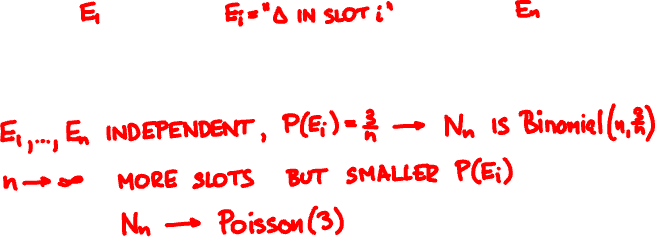 E₁ Eᵢ = "Δ IN SLOT i" Eₙ
E₁,..., Eₙ INDEPENDENT, P(Eᵢ) = 3/n → Nₙ IS Binomial(n, 3/n)
n → ∞ MORE SLOTS BUT SMALLER P(Eᵢ)
Nₙ → Poisson(3)